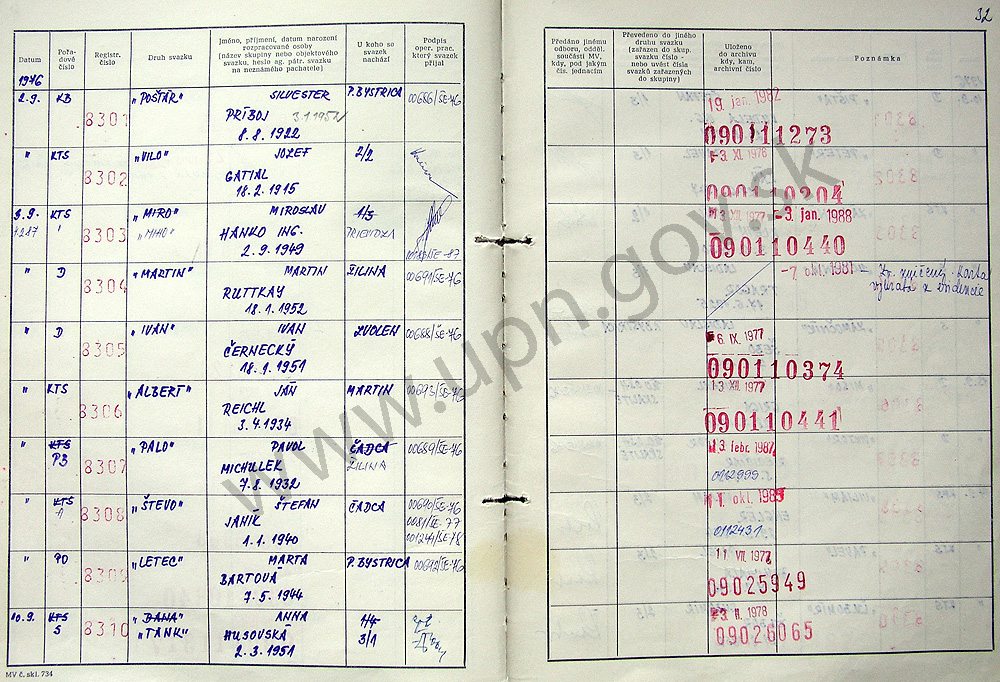 32
Datum
Pořadové číslo
Registr. číslo
Druh svazku
Jméno, příjmení, datum narození rozpracované osoby (název skupiny nebo objektového svazku, heslo ag. pátr. svazku na neznámého pachatele)
U koho se svazek nachází
Podpis oper. prac. který svazek přijal
Předáno jinému odboru, odděl. součásti MV, kdy, pod jakým čís. jednacím
Převedeno do jiného druhu svazku (zařazen do skup. svazku číslo - nebo uvést čísla svazků zařazených do skupiny)
Uloženo do archivu kdy, kam, archivní číslo
Poznámka
1976
2.9. KB 8301 „POŠŤÁR" SILVESTER P. BYSTRICA 00686/ŠE-76 19. jan. 1982
PRÍBOJ
8.8.1922 090111273
" KTS 8302 „VILO" JOZEF 2/2 3. XI. 1976
GATIAL
18.2.1915 090110204
KTS 8303 „MIRO" MIROSLAV 1/5 3. XII. 1977 -3. jan. 1988
„MIHO" HANKO ING. PRIEVOZA
2.9.1949 090110440
" D 8304 „MARTIN" MARTIN ŽILINA 00691/ŠE-76 1981
RUTTKAY
18.1.1952
" D 8305 „IVAN" IVAN ZVOLEN 00688/ŠE-76 6. IX. 1977
ČERNECKÝ
18.1.1951 090110374
" KTS 8306 „ALBERT" JÁN MARTIN 00693/ŠE-76 13. XII. 1977
REICHL
3.4.1934 090110441
" KTS 8307 „PALO" PAVOL ČADCA 00689/ŠE-76 3. febr. 1987
PB MICHULEK ŽILINA
7.8.1932 0162999
" KTS 8308 „ŠTEVO" ŠTEFAN ČADCA 00690/ŠE-76 okl. 1985
A JANIK 0081/ŠE-77
1.1.1940 001244/ŠE-78 0112431
" PO 8309 „LETEC" MARTA P. BYSTRICA 00692/ŠE-76 11. VII. 1977
BARTOVÁ
7.5.1944 09025949
10.9. KTS 8310 „DANA" ANNA 1/4 3. II. 1978
S „TANK" HUSOVSKÁ 3/1
2.3.1951 09026065
MV č. skl. 734
www.upn.gov.sk